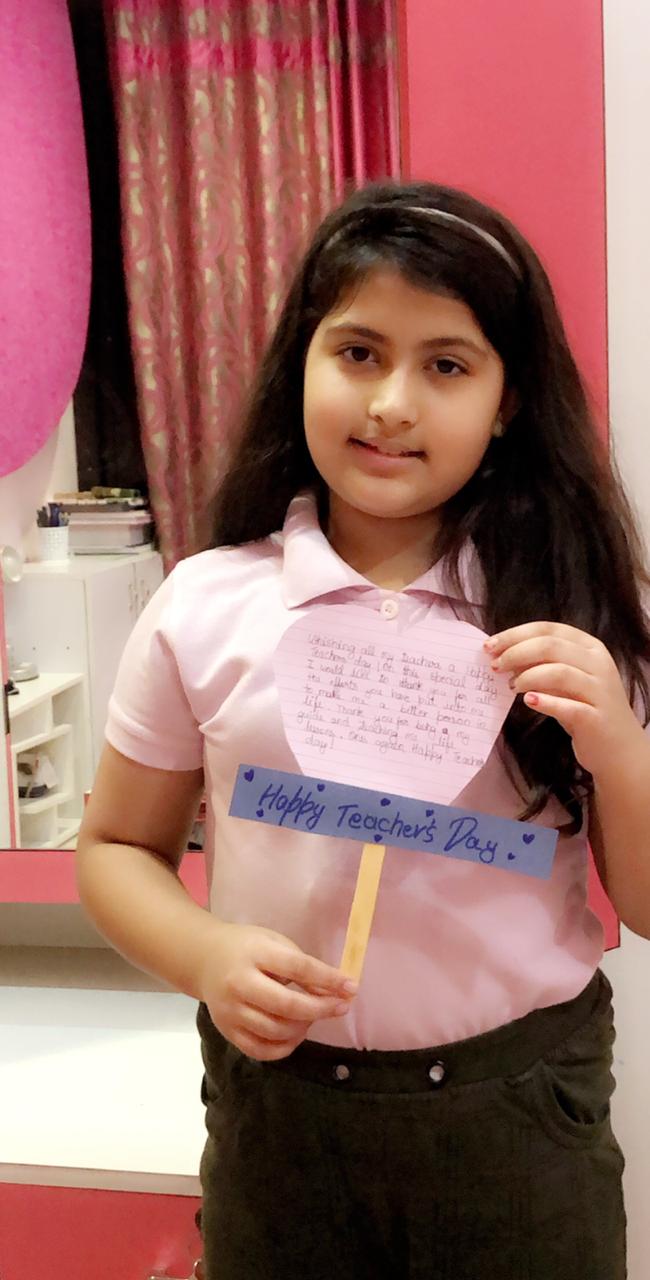 Whishing all my Teachers a Happy
Teachers day! On this special day
I would like to thank you for all
the efforts you have put into me
to make me a better person in
life. Thank you for being a my
guide and teaching me life
lessons. Once again Happy Teachers
day!
Happy Teacher's Day